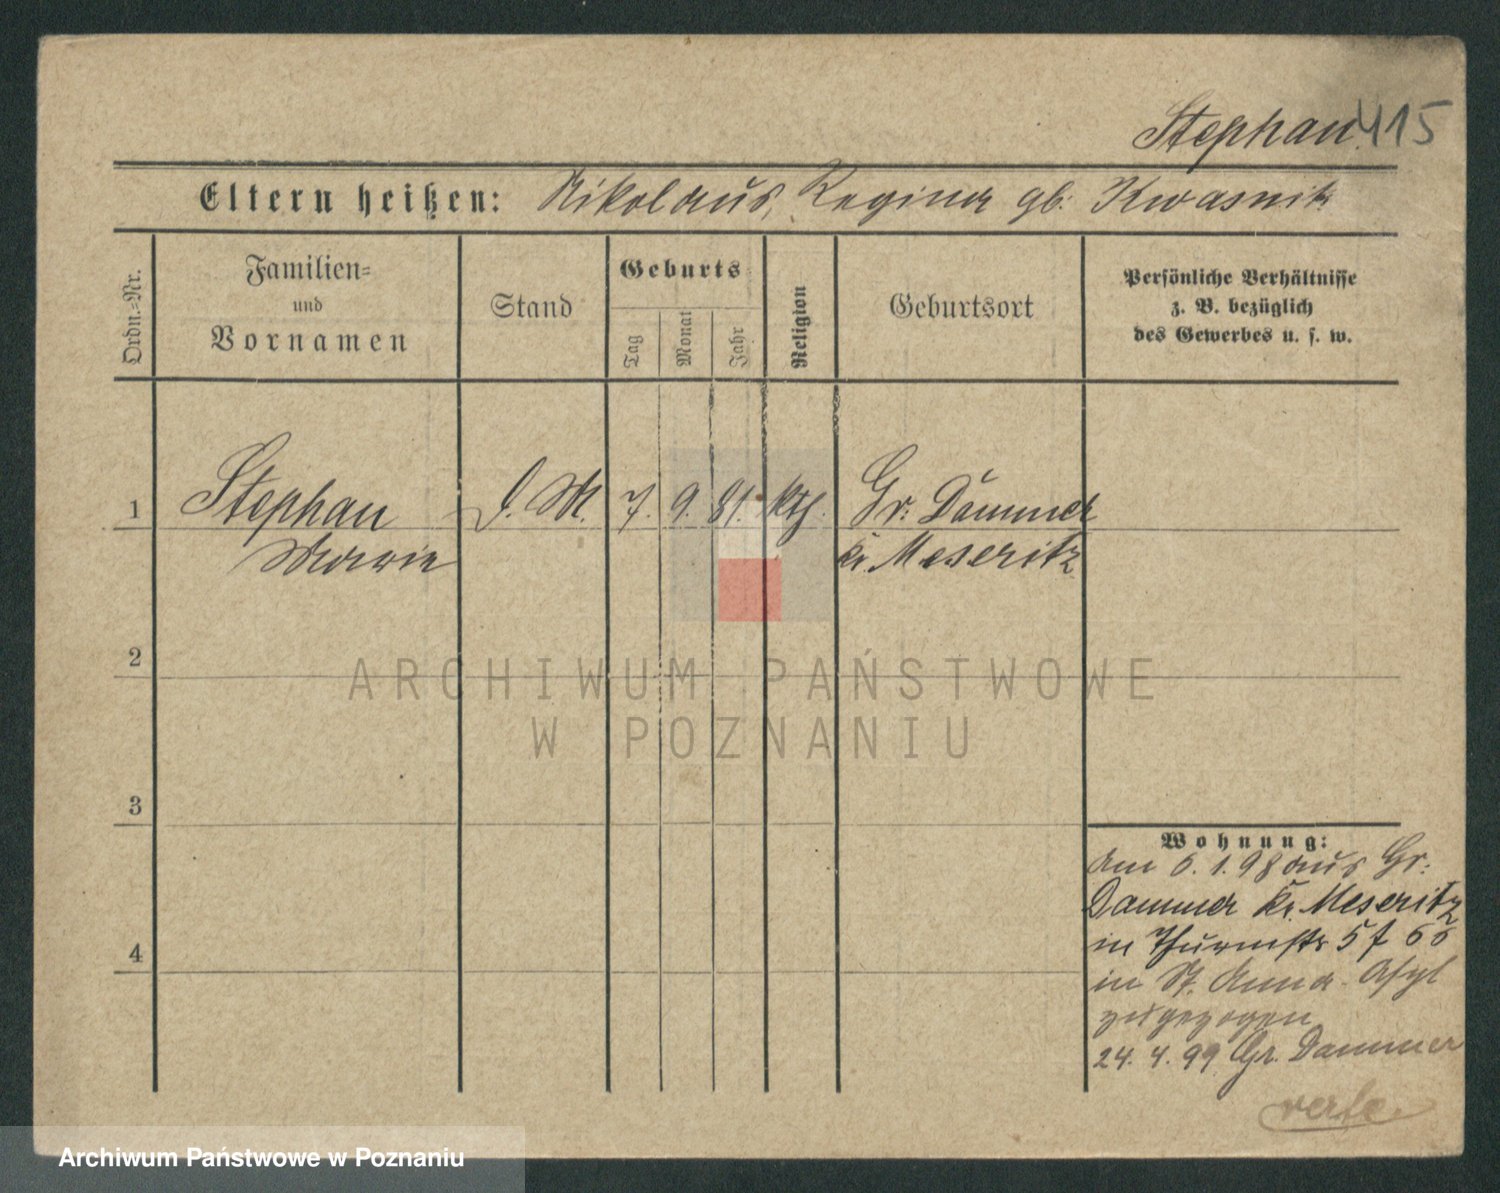 Stephan. 415
Eltern heißen: Nikolaus, Regina gb: Kwasnik
Ordn.-Nr.
Familien-
und
Vornamen
Stand
Geburts
Tag
Monat
Jahr
Religion
Geburtsort
Persönliche Verhältnisse
z. B. bezüglich
des Gewerbes u. s. w.
1 Stephan D. M. 7. 9. 81. kth. Gr. Dammer
Marie Kr. Meseritz
2
ARCHIWUM PAŃSTWOWE
W POZNANIU
3
Wohnung:
am 6. 1. 98 aus Gr.
Dammer Kr. Meseritz
in Thurmstr 57 66
in St. Anna-Asyl
4
zugezogen
24. 4. 99 Gr. Dammer
Archiwum Państwowe w Poznaniu